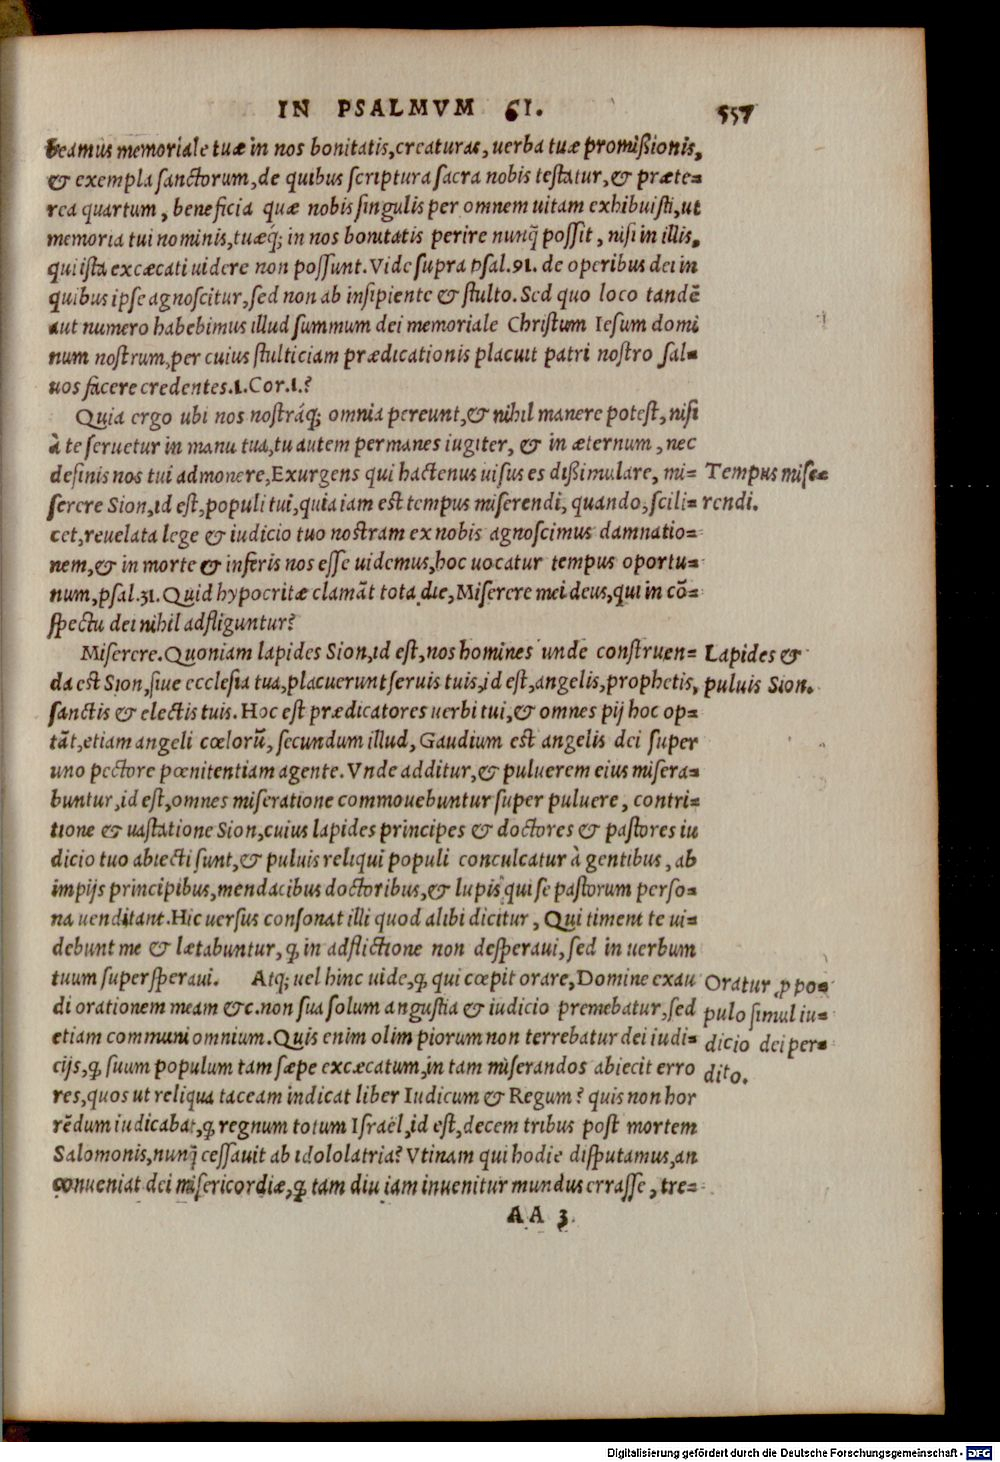 IN PSALMVM 61. 557
beamus memoriale tuæ in nos bonitatis, creaturas, uerba tuæ promißionis,
& exempla sanctorum, de quibus scriptura sacra nobis testatur, & præte=
rea quartum, beneficia quæ nobis singulis per omnem uitam exhibuisti, ut
memoria tui nominis, tuæq́; in nos bonitatis perire nunq̃ possit, nisi in illis,
qui ista excæcati uidere non possunt. Vide supra psal. 91. de operibus dei in
quibus ipse agnoscitur, sed non ab insipiente & stulto. Sed quo loco tandẽ
aut numero habebimus illud summum dei memoriale Christum Iesum domi
num nostrum, per cuius stulticiam prædicationis placuit patri nostro sal=
uos facere credentes. 1. Cor. 1.?
Quia ergo ubi nos nostráq; omnia pereunt, & nihil manere potest, nisi
à te seruetur in manu tua, tu autem permanes iugiter, & in æternum, nec
desinis nos tui admonere, Exurgens qui hactenus uisus es dißimulare, mi=
Tempus mise=
serere Sion, id est, populi tui, quia iam est tempus miserendi, quando, scili=
rendi.
cet, reuelata lege & iudicio tuo nostram ex nobis agnoscimus damnatio=
nem, & in morte & inferis nos esse uidemus, hoc uocatur tempus oportu=
num, psal. 31. Quid hypocritæ clamãt tota die, Miserere mei deus, qui in cõ=
spectu dei nihil adfliguntur?
Miserere. Quoniam lapides Sion, id est, nos homines unde construen=
Lapides &
da est Sion, siue ecclesia tua, placuerunt seruis tuis, id est, angelis, prophetis,
puluis Sion.
sanctis & electis tuis. Hoc est prædicatores uerbi tui, & omnes pij hoc op=
tãt, etiam angeli cœlorũ, secundum illud, Gaudium est angelis dei super
uno pectore pœnitentiam agente. Vnde additur, & puluerem eius misera=
buntur, id est, omnes miseratione commouebuntur super puluere, contri=
tione & uastatione Sion, cuius lapides principes & doctores & pastores iu
dicio tuo abiecti sunt, & puluis reliqui populi conculcatur à gentibus, ab
impijs principibus, mendacibus doctoribus, & lupis qui se pastorum perso=
na uenditant. Hic uersus consonat illi quod alibi dicitur, Qui timent te ui=
debunt me & lætabuntur, q̃ in adflictione non desperaui, sed in uerbum
tuum supersperaui. Atq; uel hinc uide, q̃ qui cœpit orare, Domine exau
Oratur ꝓ po=
di orationem meam &c. non sua solum angustia & iudicio premebatur, sed
pulo simul iu=
etiam communi omnium. Quis enim olim piorum non terrebatur dei iudi=
dicio dei per=
cijs, q̃ suum populum tam sæpe excæcatum, in tam miserandos abiecit erro
dito.
res, quos ut reliqua taceam indicat liber Iudicum & Regum? quis non hor
rẽdum iudicabat, q̃ regnum totum Israël, id est, decem tribus post mortem
Salomonis, nunq̃ cessauit ab idololatria? Vtinam qui hodie disputamus, an
conueniat dei misericordiæ, q̃ tam diu iam inuenitur mundus errasse, tre=
AA 3
Digitalisierung gefördert durch die Deutsche Forschungsgemeinschaft - DFG